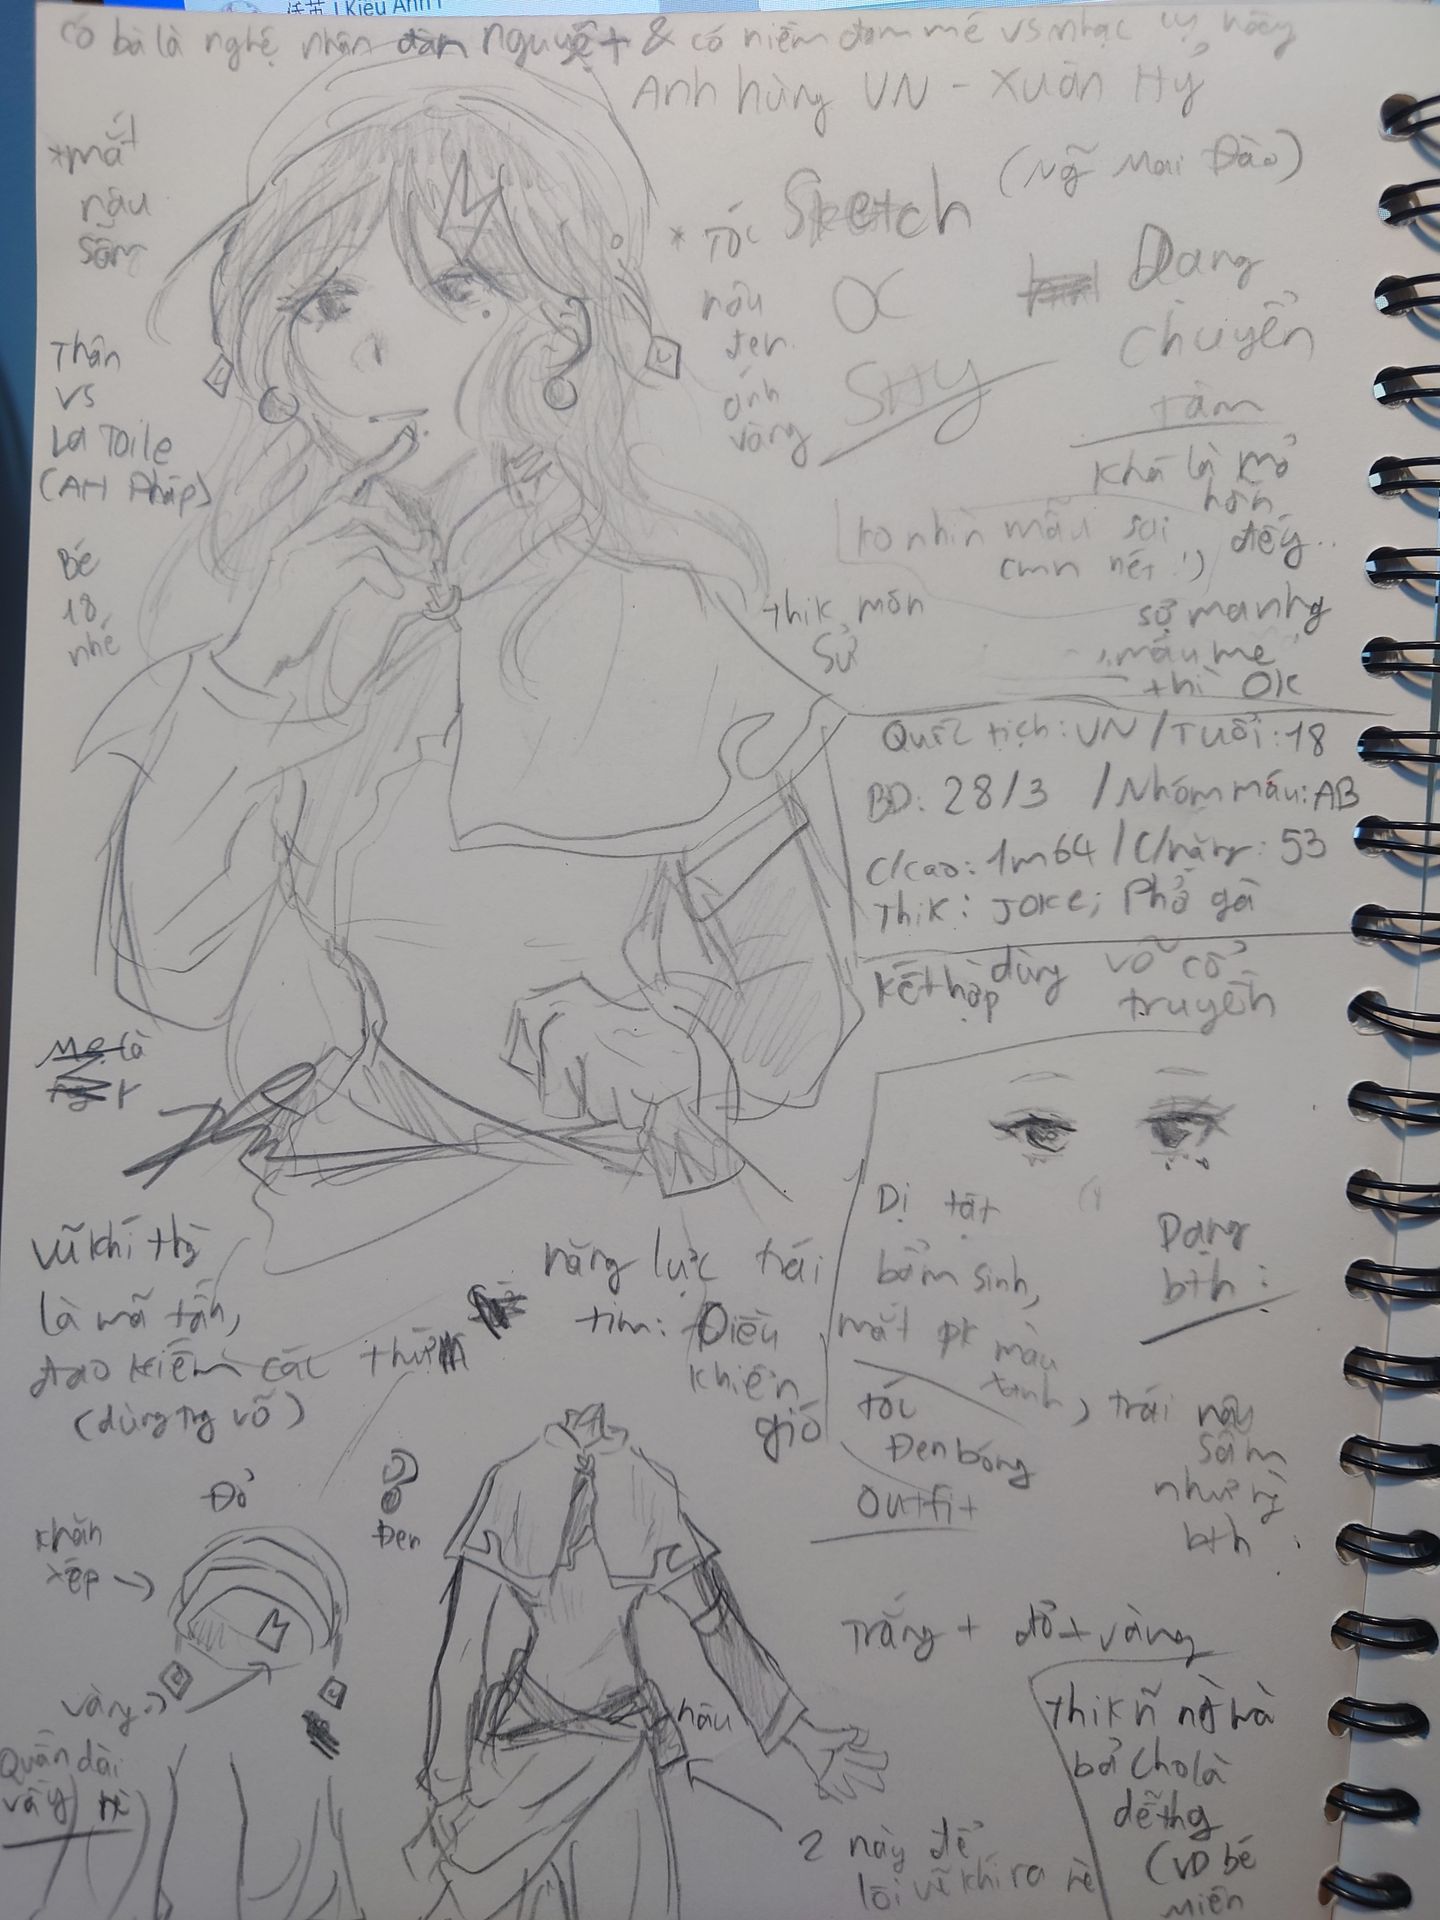 Kiều Anh
có bà là nghệ nhân đàn nguyệt & có niềm đam mê vs nhạc cụ này
Anh hùng VN - Xuân Hỷ
(Ngô Mai Đào)
*mắt
nâu
sẫm
Sketch
OC
SHY
* Tóc
nâu
đen
ánh
vàng
Dang
chuyển
tâm
Thân
vs
La Toile
(AH Pháp)
Khá là mỏ
hỗn
đấy..
ko nhìn mẫu sai
cmn nét!)
Bé
18
nhé
thik môn
Sử
sợ ma nhg
máu me
thì OK
Quốc tịch: VN / Tuổi: 18
BD: 28/3 / Nhóm máu: AB
C/cao: 1m64 / C/nặng: 53
Thik: JOKE; Phở gà
Kết hợp dùng võ cổ
truyền
Mẹ là
Dị tật
bẩm sinh,
mắt pk màu
xanh, trái nâu
sẫm
như ng
bth
Dạng
bth:
vũ khí thg
là mã tấn,
đao kiếm các thứ
(dùng trg võ)
năng lực trái
tim: Điều
khiển
gió
tóc
Đen bóng
outfit
Trắng + đỏ + vàng
Đỏ
Khăn
xếp →
Đen
vàng
Quần dài
vầy nè
nâu
2 này để
lôi vũ khí ra nè
thik ~ ng mà
bả cho là
dễ thg
(VD bé
miên